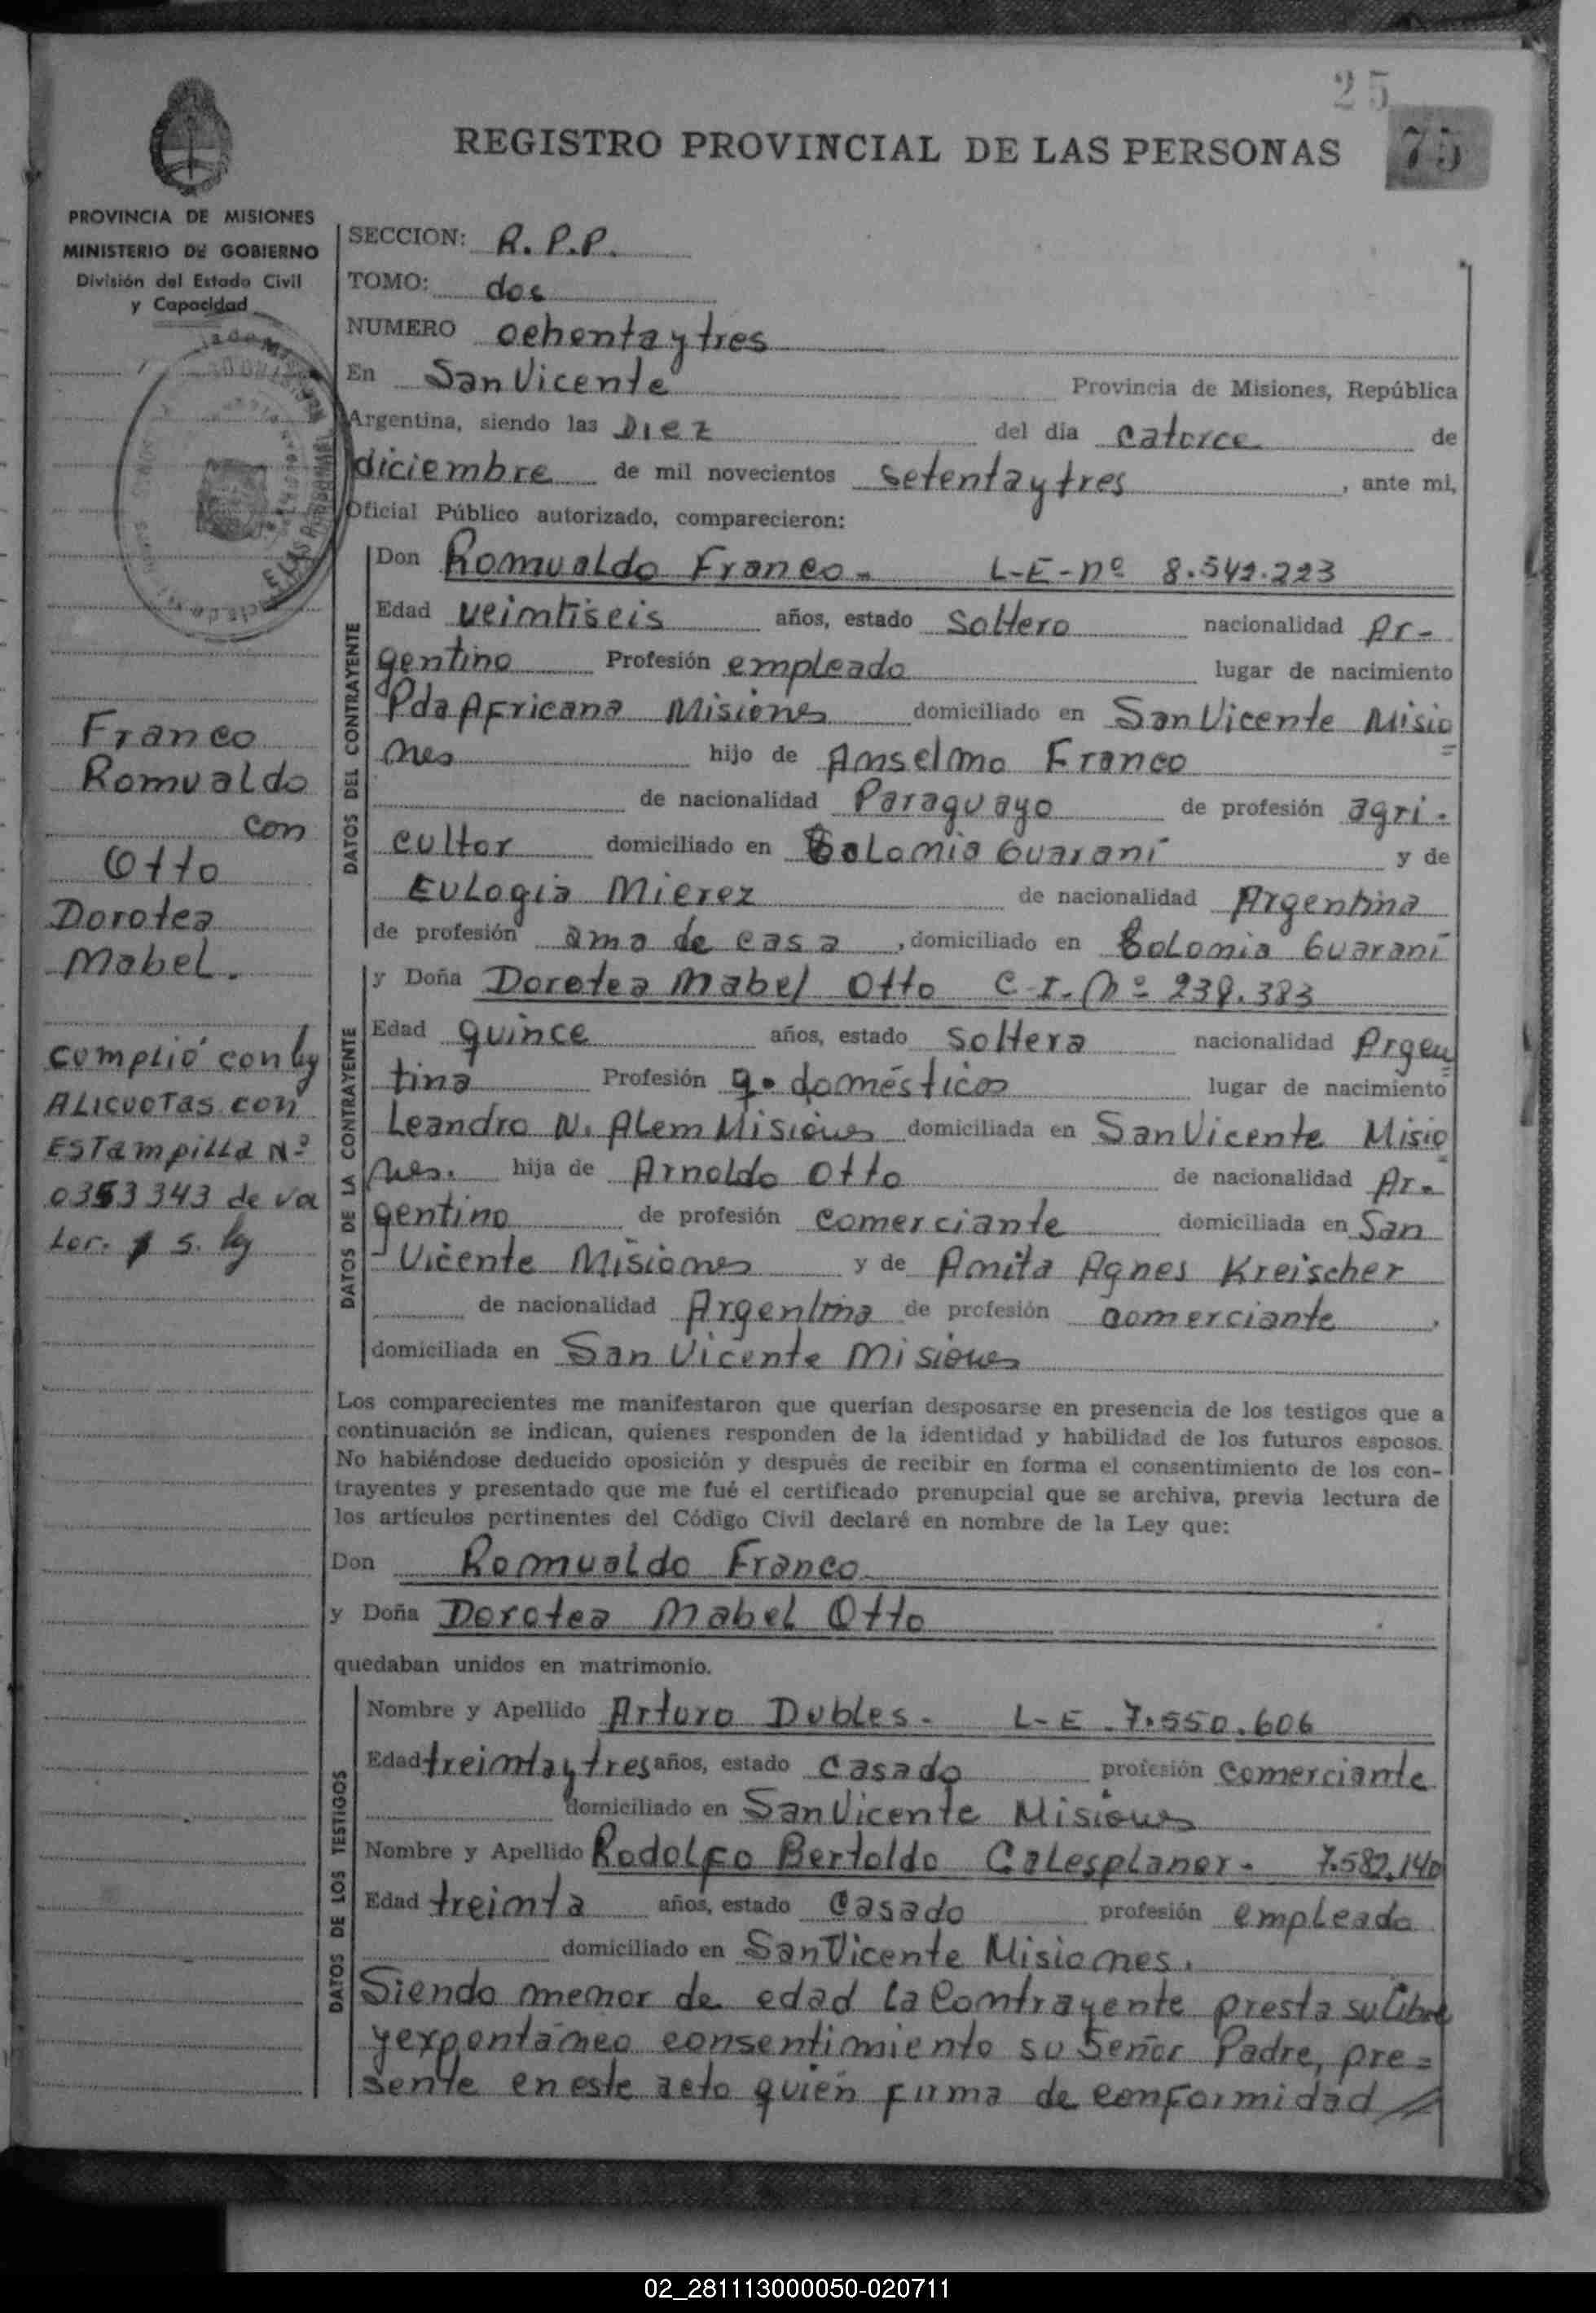 25
75
REGISTRO PROVINCIAL DE LAS PERSONAS
PROVINCIA DE MISIONES
MINISTERIO DE GOBIERNO
División del Estado Civil
y Capacidad
SECCION: R.P.P.
TOMO: dos
NUMERO ochenta y tres
En San Vicente Provincia de Misiones, República
Argentina, siendo las Diez del día catorce de
diciembre de mil novecientos setenta y tres, ante mi,
Oficial Público autorizado, comparecieron:
DATOS DEL CONTRAYENTE
Don Romualdo Franco- L-E-nº 8.542.223
Edad veimtiseis años, estado Soltero nacionalidad Ar-
gentino Profesión empleado lugar de nacimiento
Pda Africana Misiones domiciliado en San Vicente Misio
nes hijo de Anselmo Franco
de nacionalidad Paraguayo de profesión agri-
cultor domiciliado en Colonia Guaraní y de
Eulogia Mierez de nacionalidad Argentina
de profesión ama de casa, domiciliado en Colonia Guaraní
DATOS DE LA CONTRAYENTE
y Doña Dorotea Mabel Otto C-I-Nº 239.383
Edad quince años, estado soltera nacionalidad Argen
tina Profesión q. domésticos lugar de nacimiento
Leandro N. Alem Misiones domiciliada en San Vicente Misio
nes. hija de Arnoldo Otto de nacionalidad Ar-
gentino de profesión comerciante domiciliada en San
Vicente Misiones y de Anita Agnes Kreischer
de nacionalidad Argentina de profesión comerciante,
domiciliada en San Vicente Misiones
Franco
Romualdo
con
Otto
Dorotea
Mabel.
Cumplió con ley
ALICUOTAS con
ESTampilla Nº
0353343 de va
Lor. $ 5. ley
Los comparecientes me manifestaron que querían desposarse en presencia de los testigos que a
continuación se indican, quienes responden de la identidad y habilidad de los futuros esposos.
No habiéndose deducido oposición y después de recibir en forma el consentimiento de los con-
trayentes y presentado que me fué el certificado prenupcial que se archiva, previa lectura de
los artículos pertinentes del Código Civil declaré en nombre de la Ley que:
Don Romualdo Franco
y Doña Dorotea Mabel Otto
quedaban unidos en matrimonio.
DATOS DE LOS TESTIGOS
Nombre y Apellido Arturo Dubles- L-E.7.550.606
Edad treimta y tres años, estado casado profesión comerciante
domiciliado en San Vicente Misiones
Nombre y Apellido Rodolfo Bertoldo Galesplaner- 7.582.140
Edad treimta años, estado casado profesión empleado
domiciliado en San Vicente Misiones.
Siendo menor de edad la contrayente presta su libre
y expontáneo consentimiento su Señor Padre, pre=
sente en este acto quién firma de conformidad
02_281113000050-020711